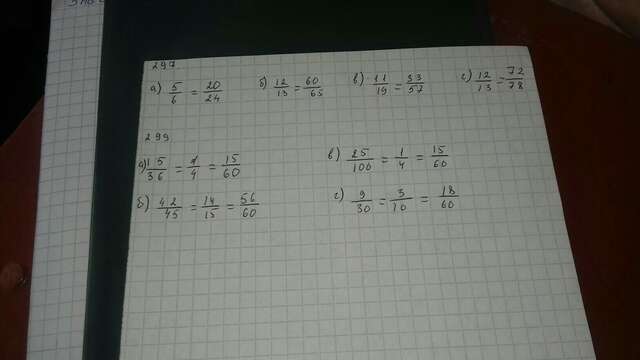 297
а) 5/6 = 20/24 б) 12/13 = 60/65 в) 11/19 = 33/57 г) 12/13 = 72/78
299
а) 15/36 = 1/4 = 15/60 в) 25/100 = 1/4 = 15/60
б) 42/45 = 14/15 = 56/60 г) 9/30 = 3/10 = 18/60